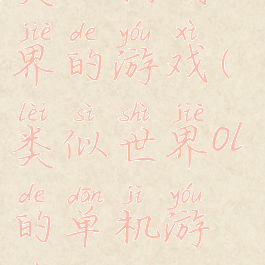 jiè de yóu xì
界的游戏(
lèi sì shì jiè
类似世界Ol
de dān jī yóu
的单机游